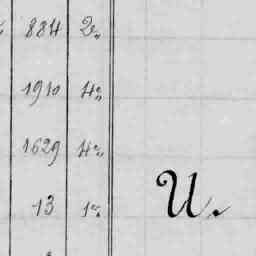 884 2.
1910 4.
1629 4.
13 1.
U.